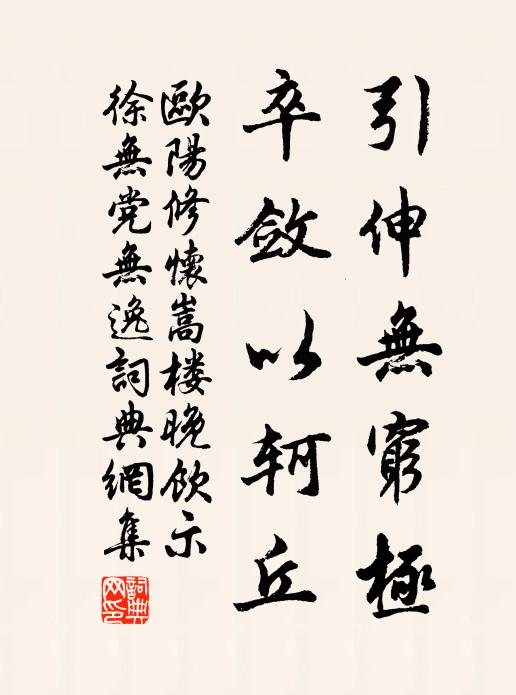 引伸無窮極
卒斂以軻丘
歐陽修懷嵩楼晚飲示
徐無党無逸詞典網集
詞典网印